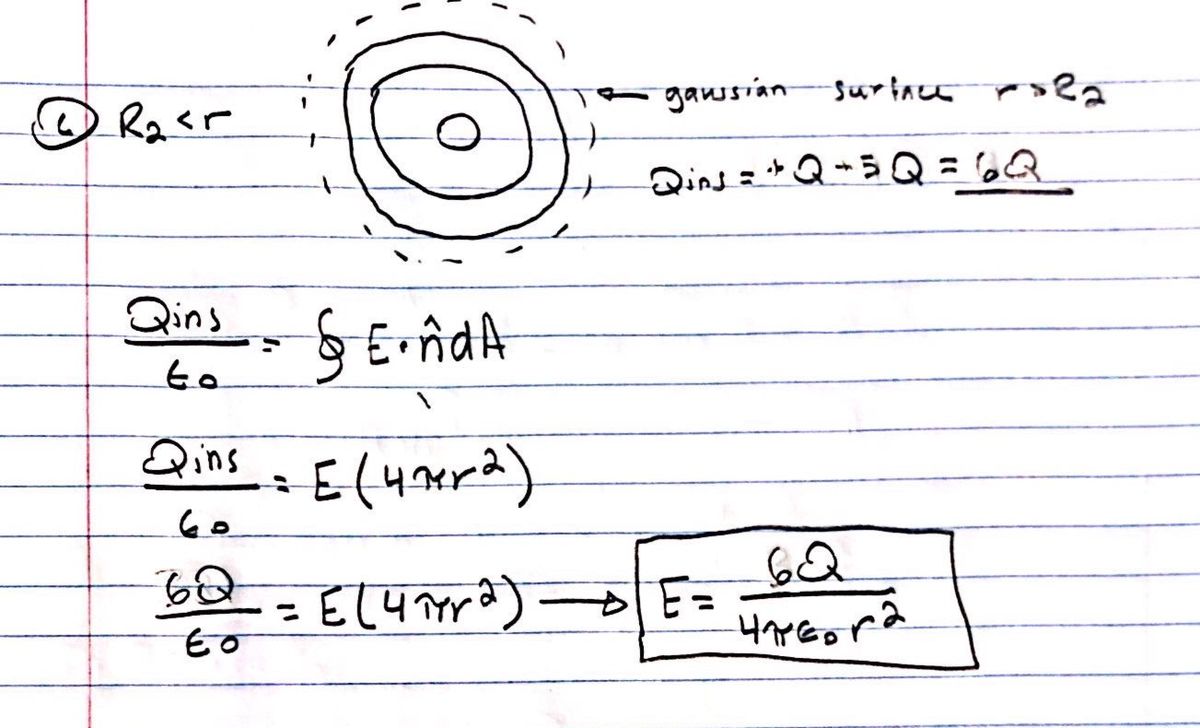 c) R₂ < r
← gaussian surface r > R₂
Qins = +Q + 5Q = 6Q
Qins/ε₀ = ∮ E · n̂ dA
Qins/ε₀ = E(4πr²)
6Q/ε₀ = E(4πr²) → E = 6Q/4πε₀r²